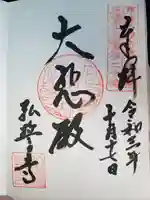 奉拝
令和三年
十月十七日
大悲殿
弘誓寺